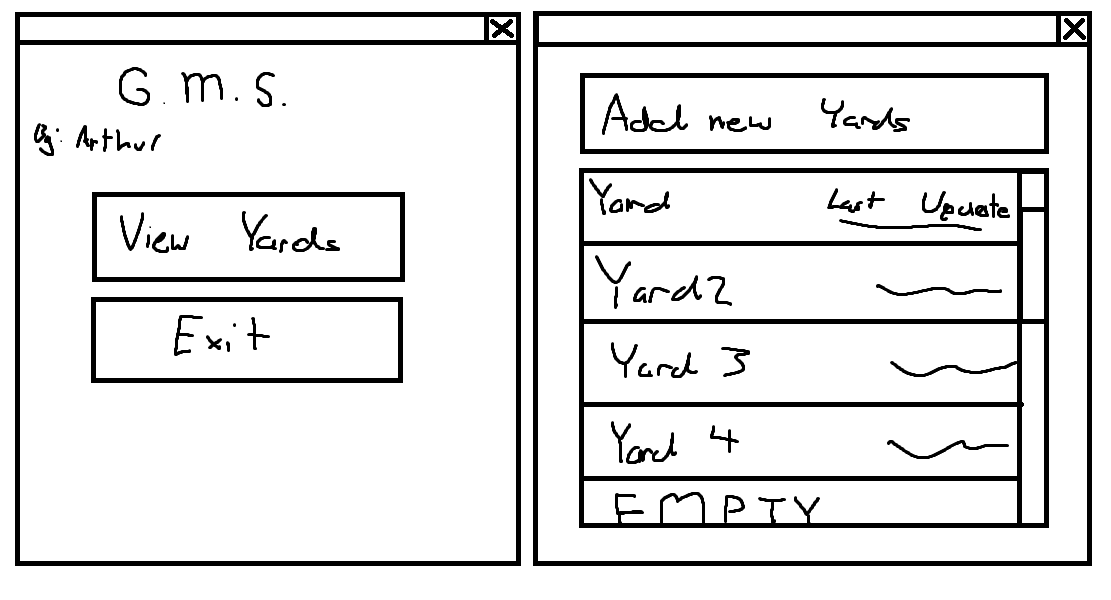 G.M.S.
By: Arthur
View Yards
Exit
Add new Yards
Yard Last Update
Yard 2
Yard 3
Yard 4
EMPTY